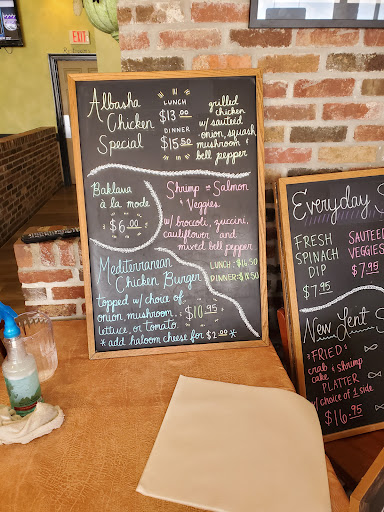 EXIT
Albasha
Chicken
Special
LUNCH
$13.00
DINNER
$15.50
grilled
chicken
w/ sauteed
onion, squash
mushroom &
bell pepper
Baklava
à la mode
$6.00
Shrimp or Salmon
& Veggies
w/ broccoli, zuccini,
cauliflower and
mixed bell pepper
LUNCH: $14.50
DINNER: $18.50
Mediterranean
Chicken Burger
topped w/ choice of
onion, mushroom,
lettuce, or tomato.
$10.95
* add haloom cheese for $2.00 *
Everyday
FRESH
SPINACH
DIP
$7.95
SAUTEED
VEGGIES
$7.95
New Lent
FRIED
crab & shrimp
cake
PLATTER
w/ choice of 1 side
$16.95